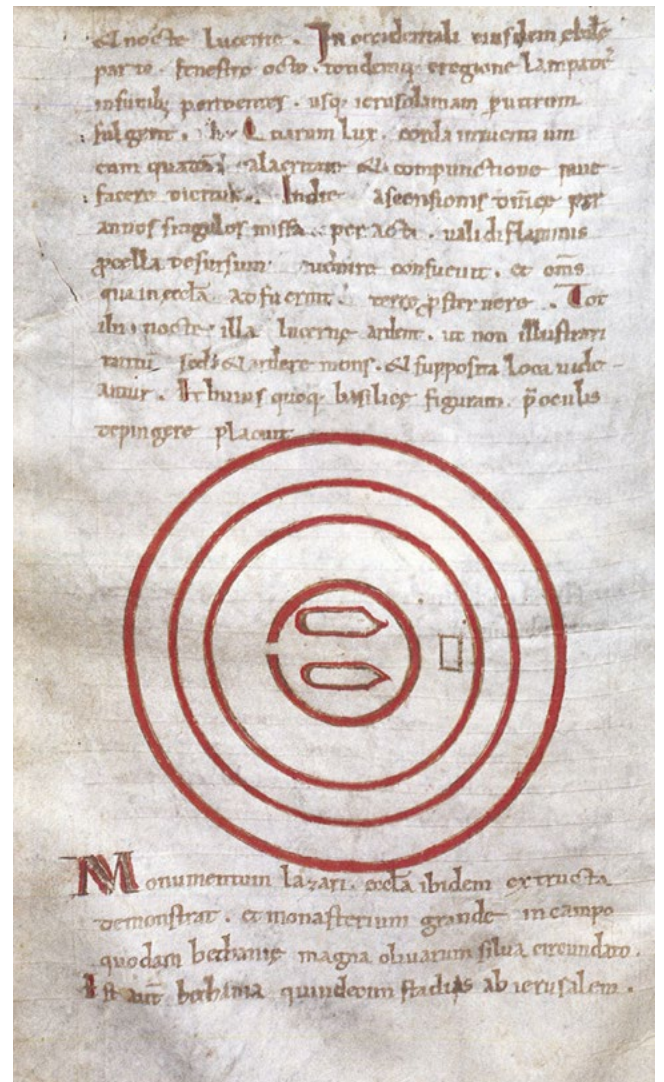 et nocte lucerne. In occidentali eiusdem eccłe
parte fenestre octo. totidemq; e regione lampadeſ
in funib; pendentes. usq; ierusolimam p uitrum
fulgent. Quarum lux corda intuentium
cum quadā alacritate et compunctione paue-
facere dicitur. In die ascensionis dn̄ice per
annos singulos missa peracta. ualidi flaminis
pcella desursum uenire consueuit. et om̄s
qui in eccła adfuerint. terre psternere. Tot
ibi nocte illa lucerne ardent. ut non illustrari
tantū sed et ardere mons. et supposita loca uide-
antur. huius quoq; basilicę figuram. p̄ oculis
depingere placuit
Monumentum lazari. eccła ibidem extructa
demonstrat. et monasterium grande in campo
quodam bethanię magna oliuarum silua circundato.
Est aut̄ bethania quindecim stadiis ab ierusalem.